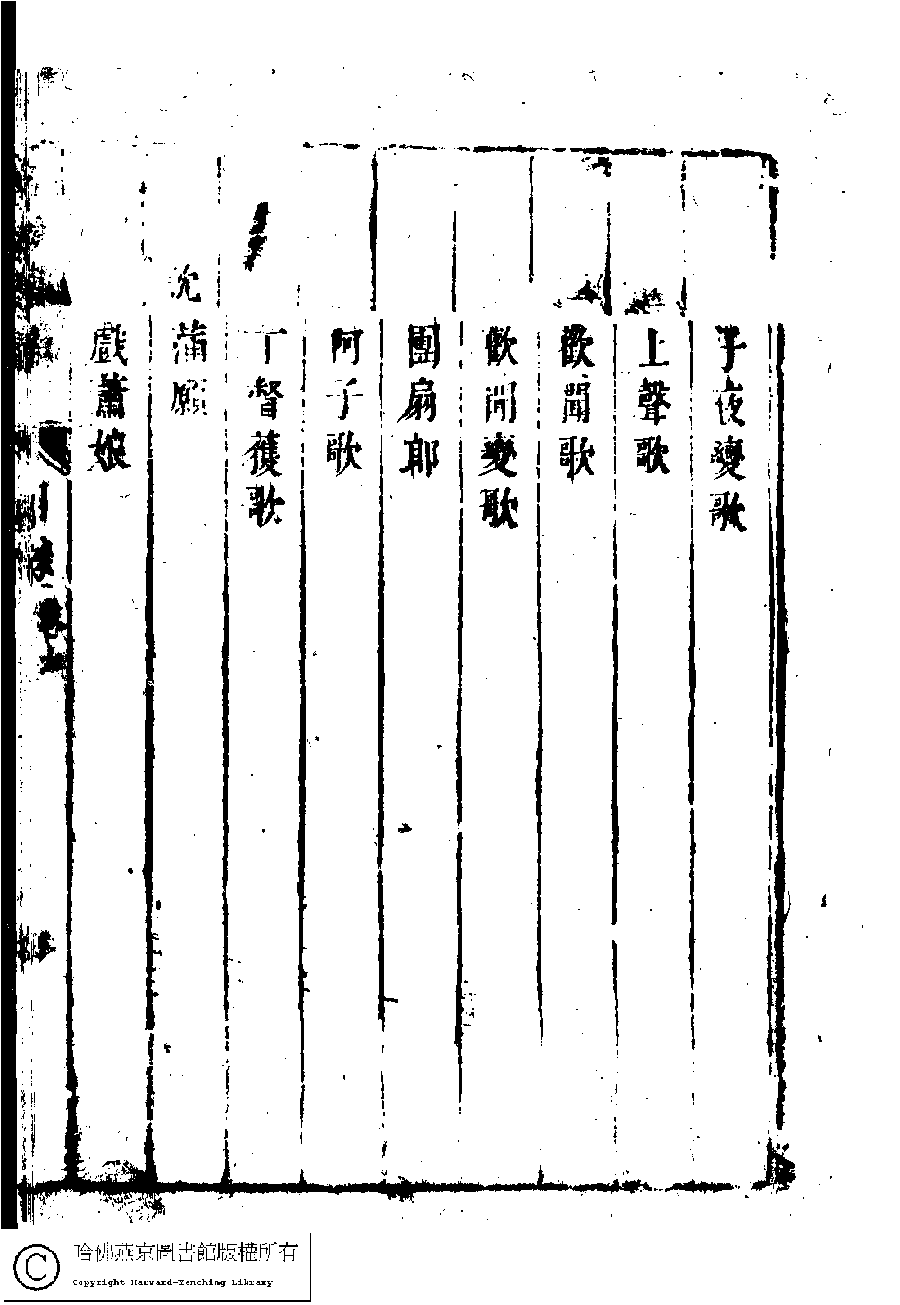 子夜變歌
上聲歌
歡聞歌
歡聞變歌
團扇郎
阿子歌
丁督護歌
沈蒲願
戲蕭娘
哈佛燕京圖書館版權所有
Copyright Harvard-Yenching Library